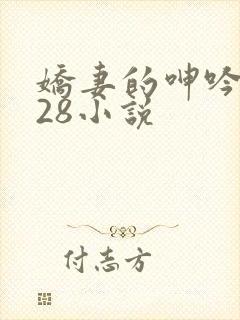 嬌妻的呻吟
28小說
付志方